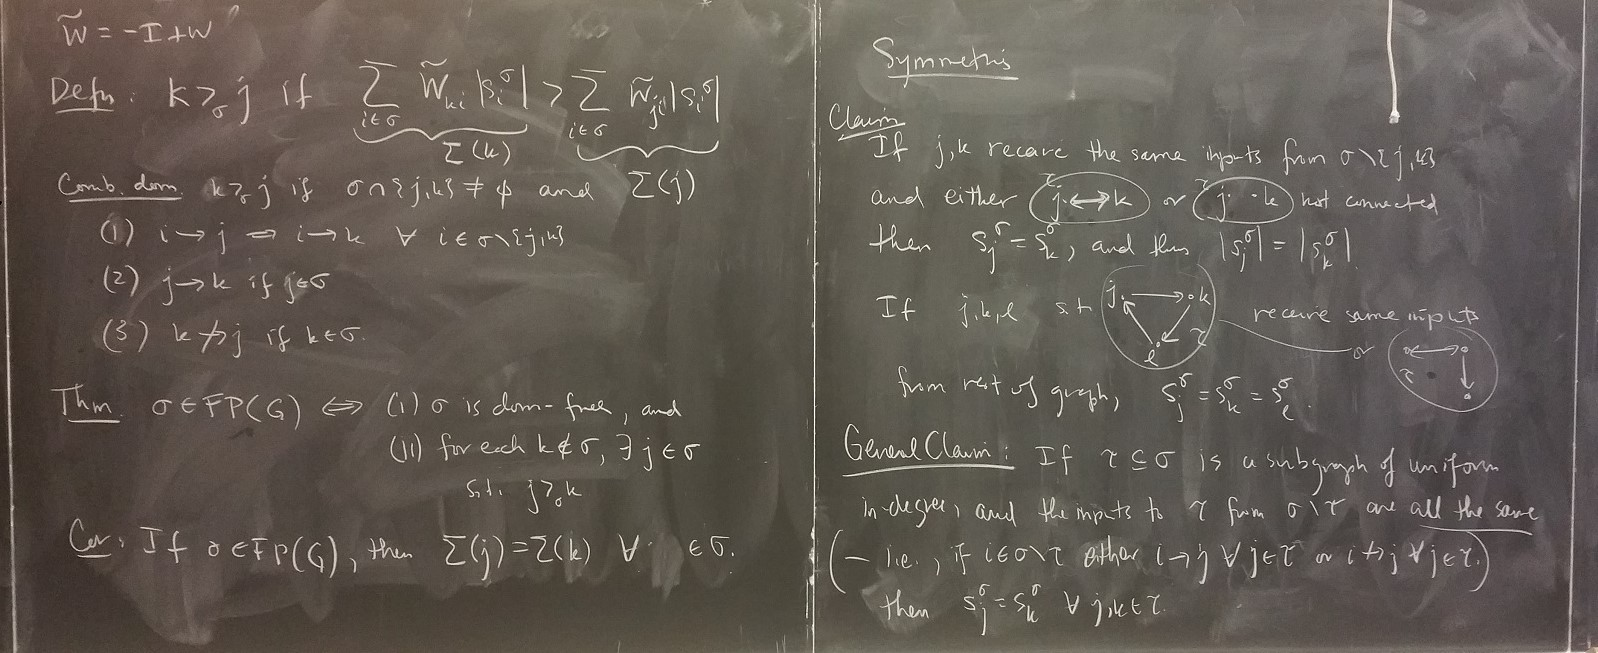 W̃ = -I+W
Defn: k >_σ j if Σ_{i∈σ} W̃_{ki} |s_i^σ| > Σ_{i∈σ} W̃_{ji} |s_i^σ|
Σ(k)
Σ(j)
Comb. dom. k >_σ j if σ∩{j,k} ≠ ϕ and
(1) i→j ⇒ i→k ∀ i∈σ\{j,k}
(2) j→k if j∈σ
(3) k↛j if k∈σ.
Thm. σ∈FP(G) ⇔ (i) σ is dom-free, and
(ii) for each k∉σ, ∃ j∈σ
s.t. j >_σ k
Cor: If σ∈FP(G), then Σ(j)=Σ(k) ∀ ∈σ.
Symmetris
Claim
If j,k receive the same inputs from σ\{j,k}
and either τ j↔k or τ j· ·k not connected
then s_j^σ = s_k^σ, and thus |s_j^σ| = |s_k^σ|.
If j,k,l s.t. j k l τ receive same inputs
or τ
from rest of graph, s_j^σ = s_k^σ = s_l^σ.
General Claim: If τ⊆σ is a subgraph of uniform
in-degree, and the inputs to τ from σ\τ are all the same
(– i.e., if i∈σ\τ either i→j ∀j∈τ or i↛j ∀j∈τ.)
then s_j^σ = s_k^σ ∀ j,k∈τ.